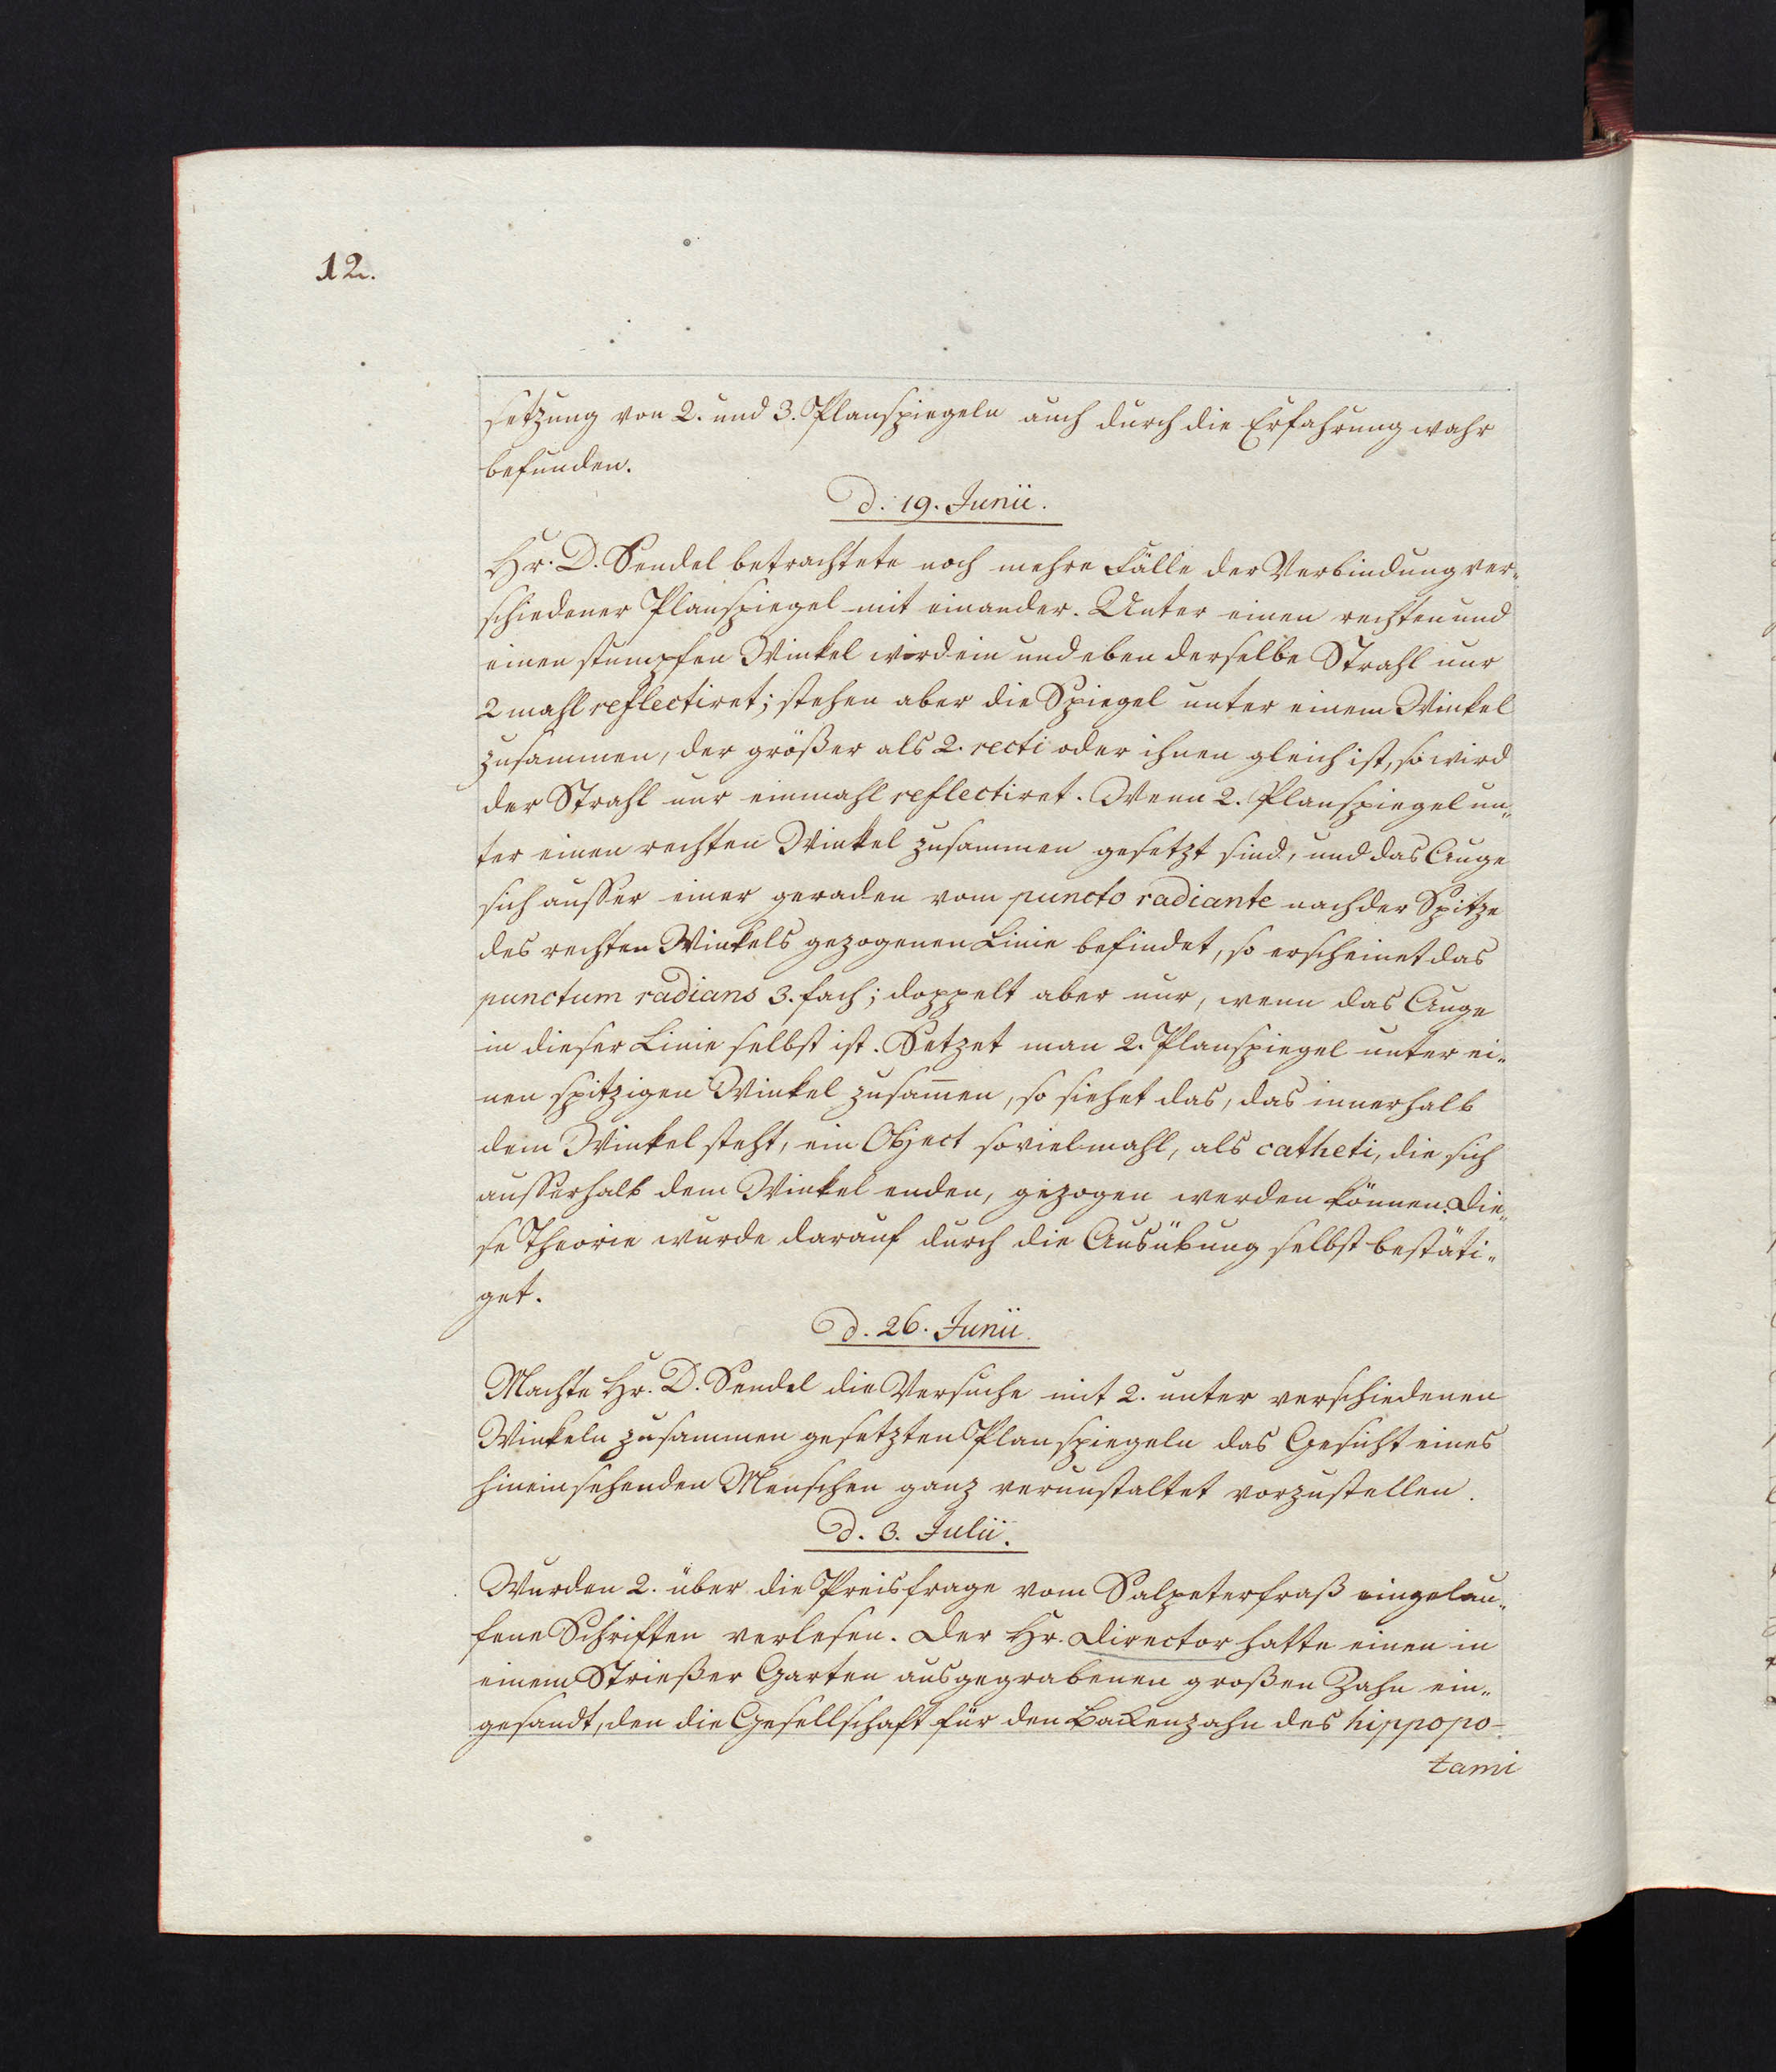 12.
setzung von 2. und 3. Planspiegeln auch durch die Erfahrung wahr
befunden.
d. 19. Junii.
Hr. D. Sendel betrachtete noch mehre Fälle der Verbindung ver-
schiedener Planspiegel mit einander. Unter einen rechten und
einen stumpfen Winkel wird ein und eben derselbe Strahl nur
2 mahl reflectiret; stehen aber die Spiegel unter einem Winkel
zusammen, der größer als 2. recti oder ihnen gleich ist, so wird
der Strahl nur einmahl reflectiret. Wenn 2. Planspiegel un-
ter einen rechten Winkel zusammen gesetzt sind, und das Auge
sich ausser einer geraden vom puncto radiante nach der Spitze
des rechten Winkels gezogenen Linie befindet, so erscheinet das
punctum radians 3. fach; doppelt aber nur, wenn das Auge
in dieser Linie selbst ist. Setzet man 2. Planspiegel unter ei-
nen spitzigen Winkel zusam̄en, so siehet das, das innerhalb
dem Winkel steht, ein Object sovielmahl, als catheti, die sich
ausserhalb dem Winkel enden, gezogen werden können. Die-
se Theorie wurde darauf durch die Ausübung selbst bestäti-
get.
d. 26. Junii.
Machte Hr. D. Sendel die Versuche mit 2. unter verschiedenen
Winkeln zusammen gesetzten Planspiegeln das Gesicht eines
hineinsehenden Menschen ganz verunstaltet vorzustellen.
d. 3. Julii.
Wurden 2. über die Preisfrage vom Salpeterfraß eingelau-
fene Schriften verlesen. Der Hr. Director hatte einen in
einem Strießer Garten ausgegrabenen großen Zahn ein-
gesandt, den die Gesellschaft für den Backenzahn des hippopo-
tami